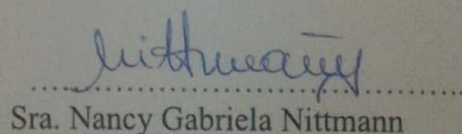 Nittmann
........................................
Sra. Nancy Gabriela Nittmann